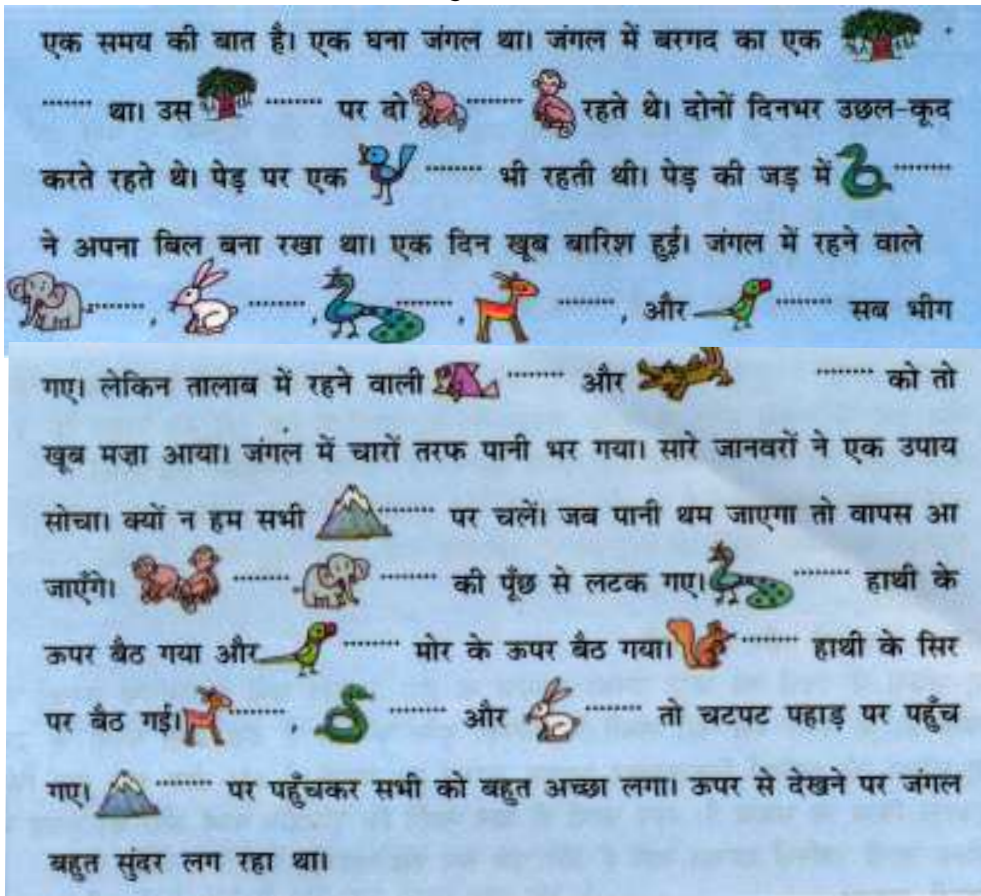 एक समय की बात है। एक घना जंगल था। जंगल में बरगद का एक
........ था। उस ........ पर दो ........ रहते थे। दोनों दिनभर उछल-कूद
करते रहते थे। पेड़ पर एक ........ भी रहती थी। पेड़ की जड़ में ........
ने अपना बिल बना रखा था। एक दिन खूब बारिश हुई। जंगल में रहने वाले
........, ........, ........, ........, और ........ सब भीग
गए। लेकिन तालाब में रहने वाली ........ और ........ को तो
खूब मज़ा आया। जंगल में चारों तरफ पानी भर गया। सारे जानवरों ने एक उपाय
सोचा। क्यों न हम सभी ........ पर चलें। जब पानी थम जाएगा तो वापस आ
जाएँगे। ........ ........ की पूँछ से लटक गए। ........ हाथी के
ऊपर बैठ गया और ........ मोर के ऊपर बैठ गया। ........ हाथी के सिर
पर बैठ गई। ........, ........ और ........ तो चटपट पहाड़ पर पहुँच
गए। ........ पर पहुँचकर सभी को बहुत अच्छा लगा। ऊपर से देखने पर जंगल
बहुत सुंदर लग रहा था।